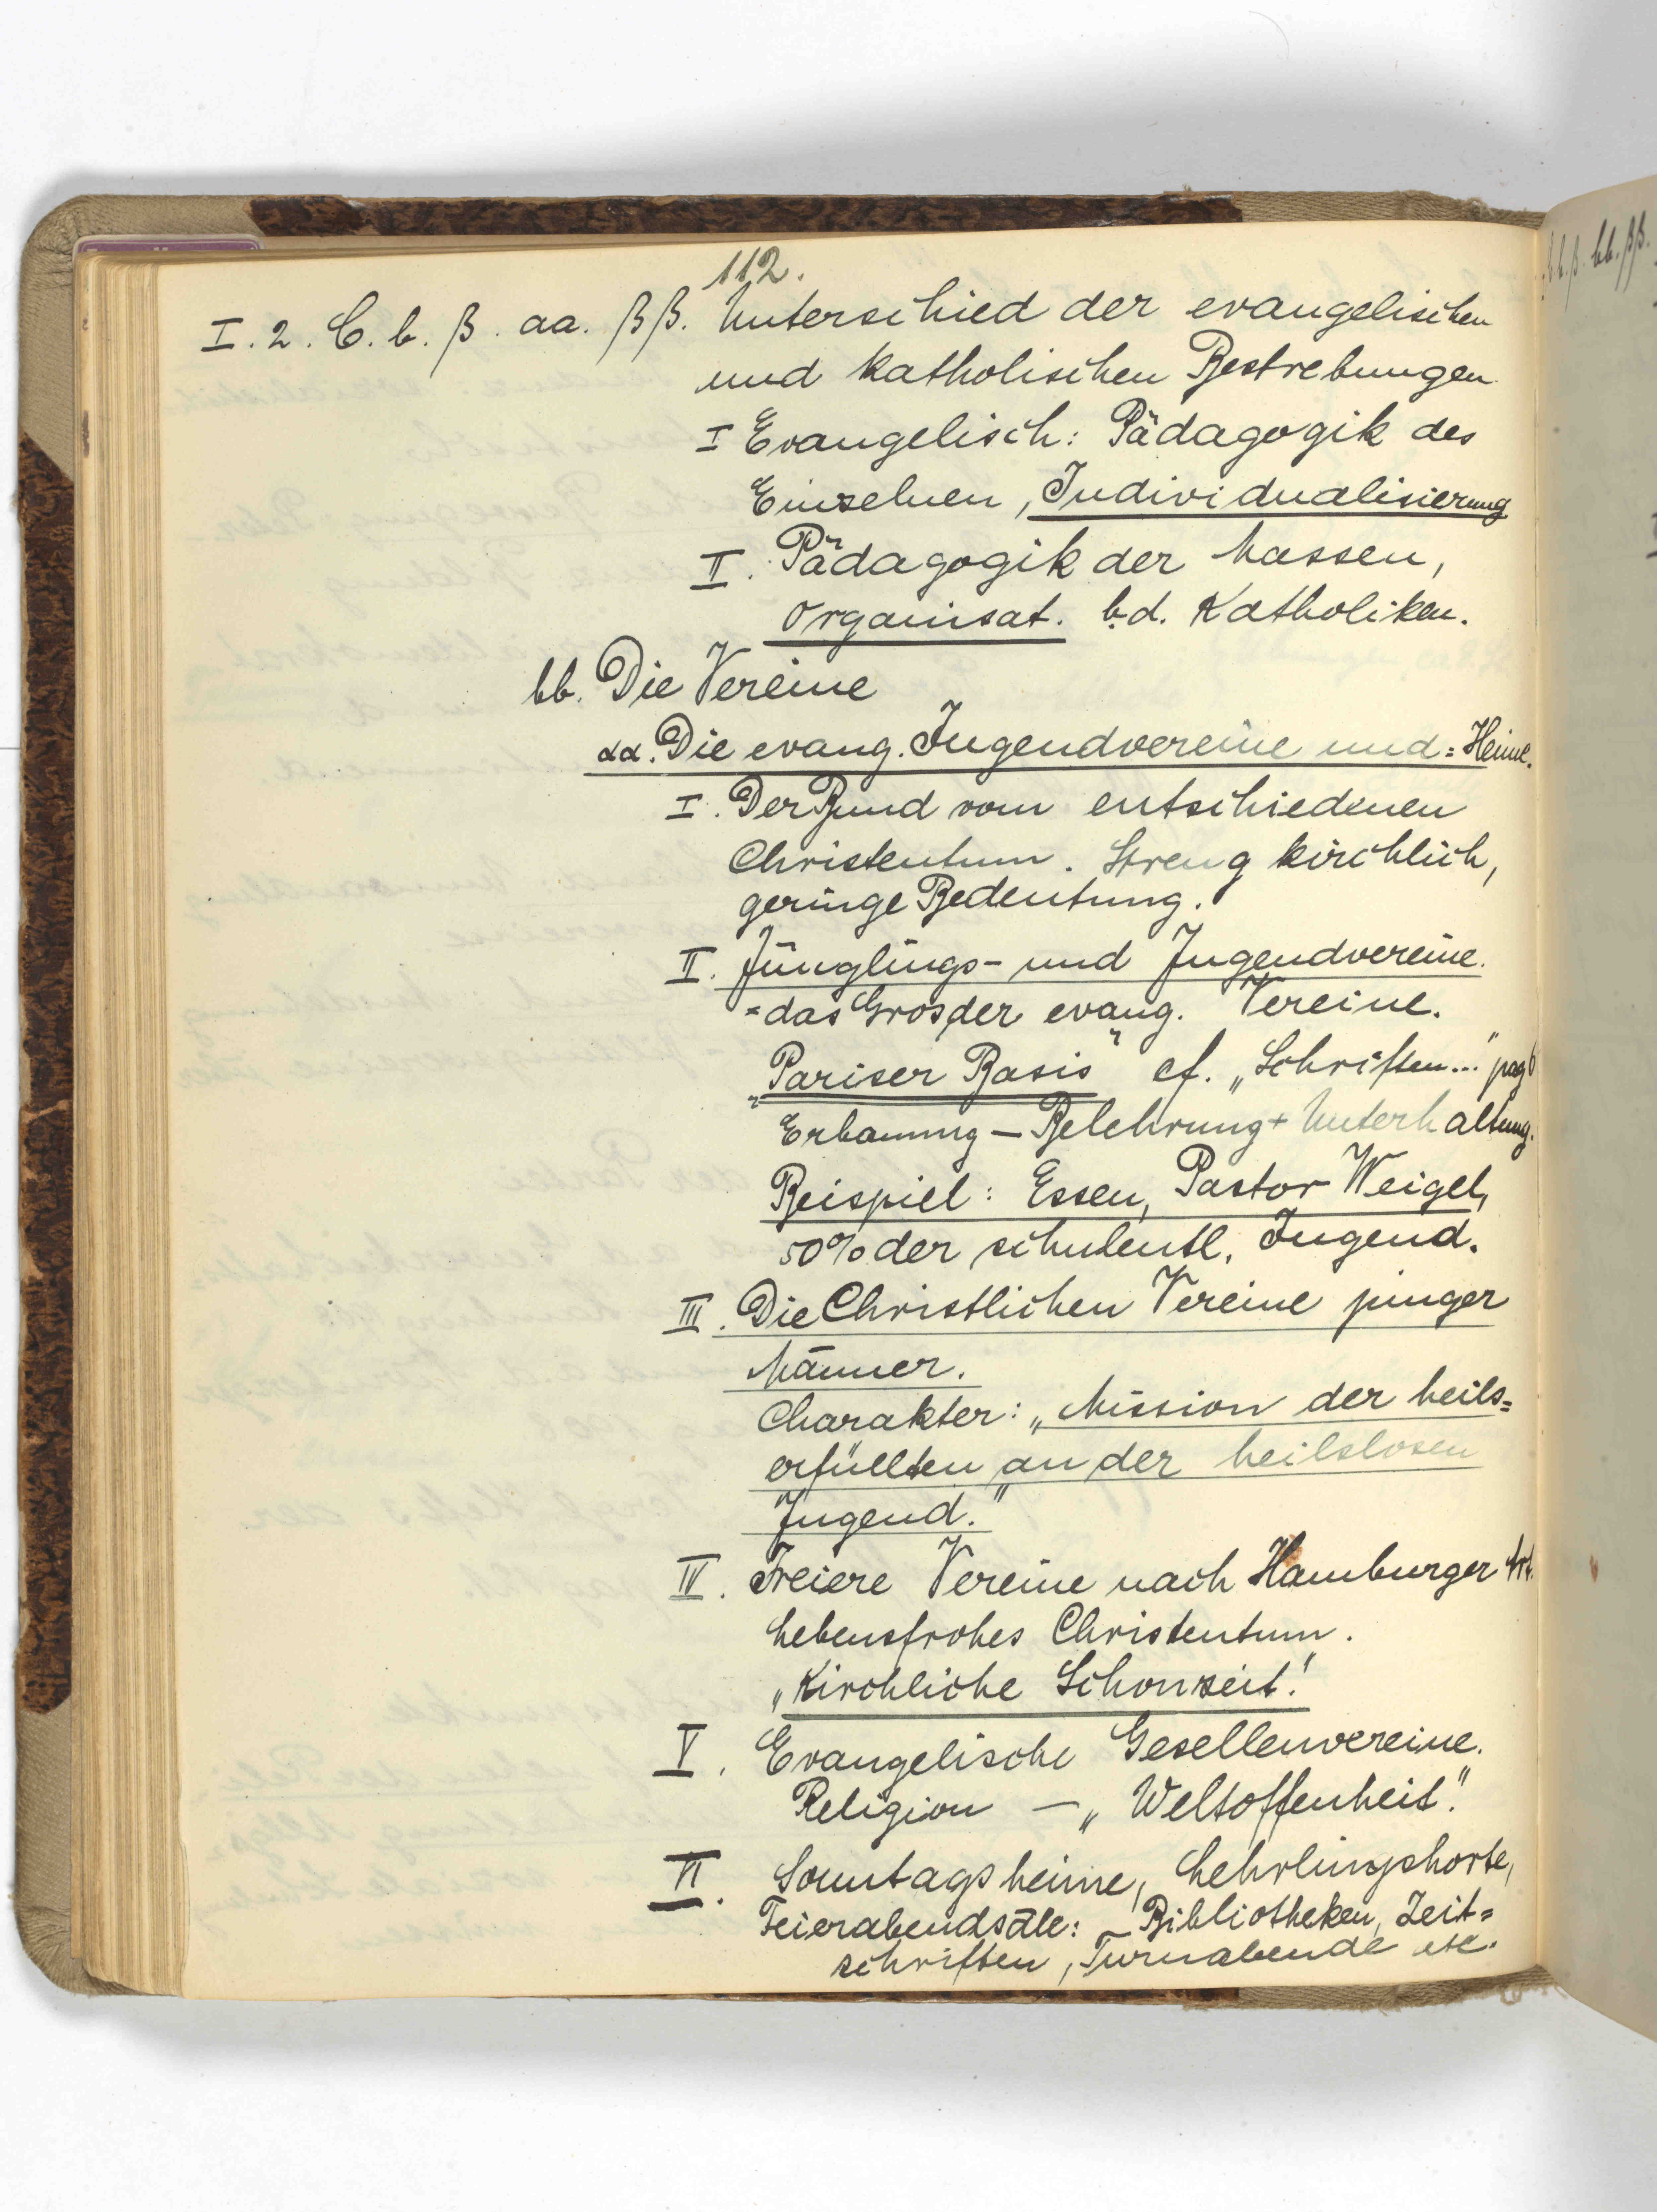 112.
I. 2. C. b. β. aa. ββ. Unterschied der evangelischen
und katholischen Bestrebungen
I Evangelisch: Pädagogik des
Einzelnen, Individualisierung
II. Pädagogik der Massen,
Organisat. b.d. Katholiken.
bb. Die Vereine
αα. Die evang. Jugendvereine und = Heime.
I. Der Bund vom entschiedenen
Christentum. Streng kirchlich,
geringe Bedeutung.
II. Jünglings- und Jugendvereine.
= das Gros der evang. Vereine.
"Pariser Basis" cf. „Schriften..." pag 6
Erbauung – Belehrung + Unterhaltung.
Beispiel: Essen, Pastor Weigel,
50% der schulentl. Jugend.
III. Die Christlichen Vereine junger
Männer.
Charakter: „Mission der heils=
erfüllten an der heilslosen
Jugend."
IV. Freiere Vereine nach Hamburger Art.
Lebensfrohes Christentum.
„Kirchliche Schonzeit."
V. Evangelische Gesellenvereine.
Religion – „Weltoffenheit".
VI. Sonntagsheime, Lehrlingshorte,
Feierabendsäle: – Bibliotheken, Zeit=
schriften, Turnabende etc.
b. β. bb. ββ.